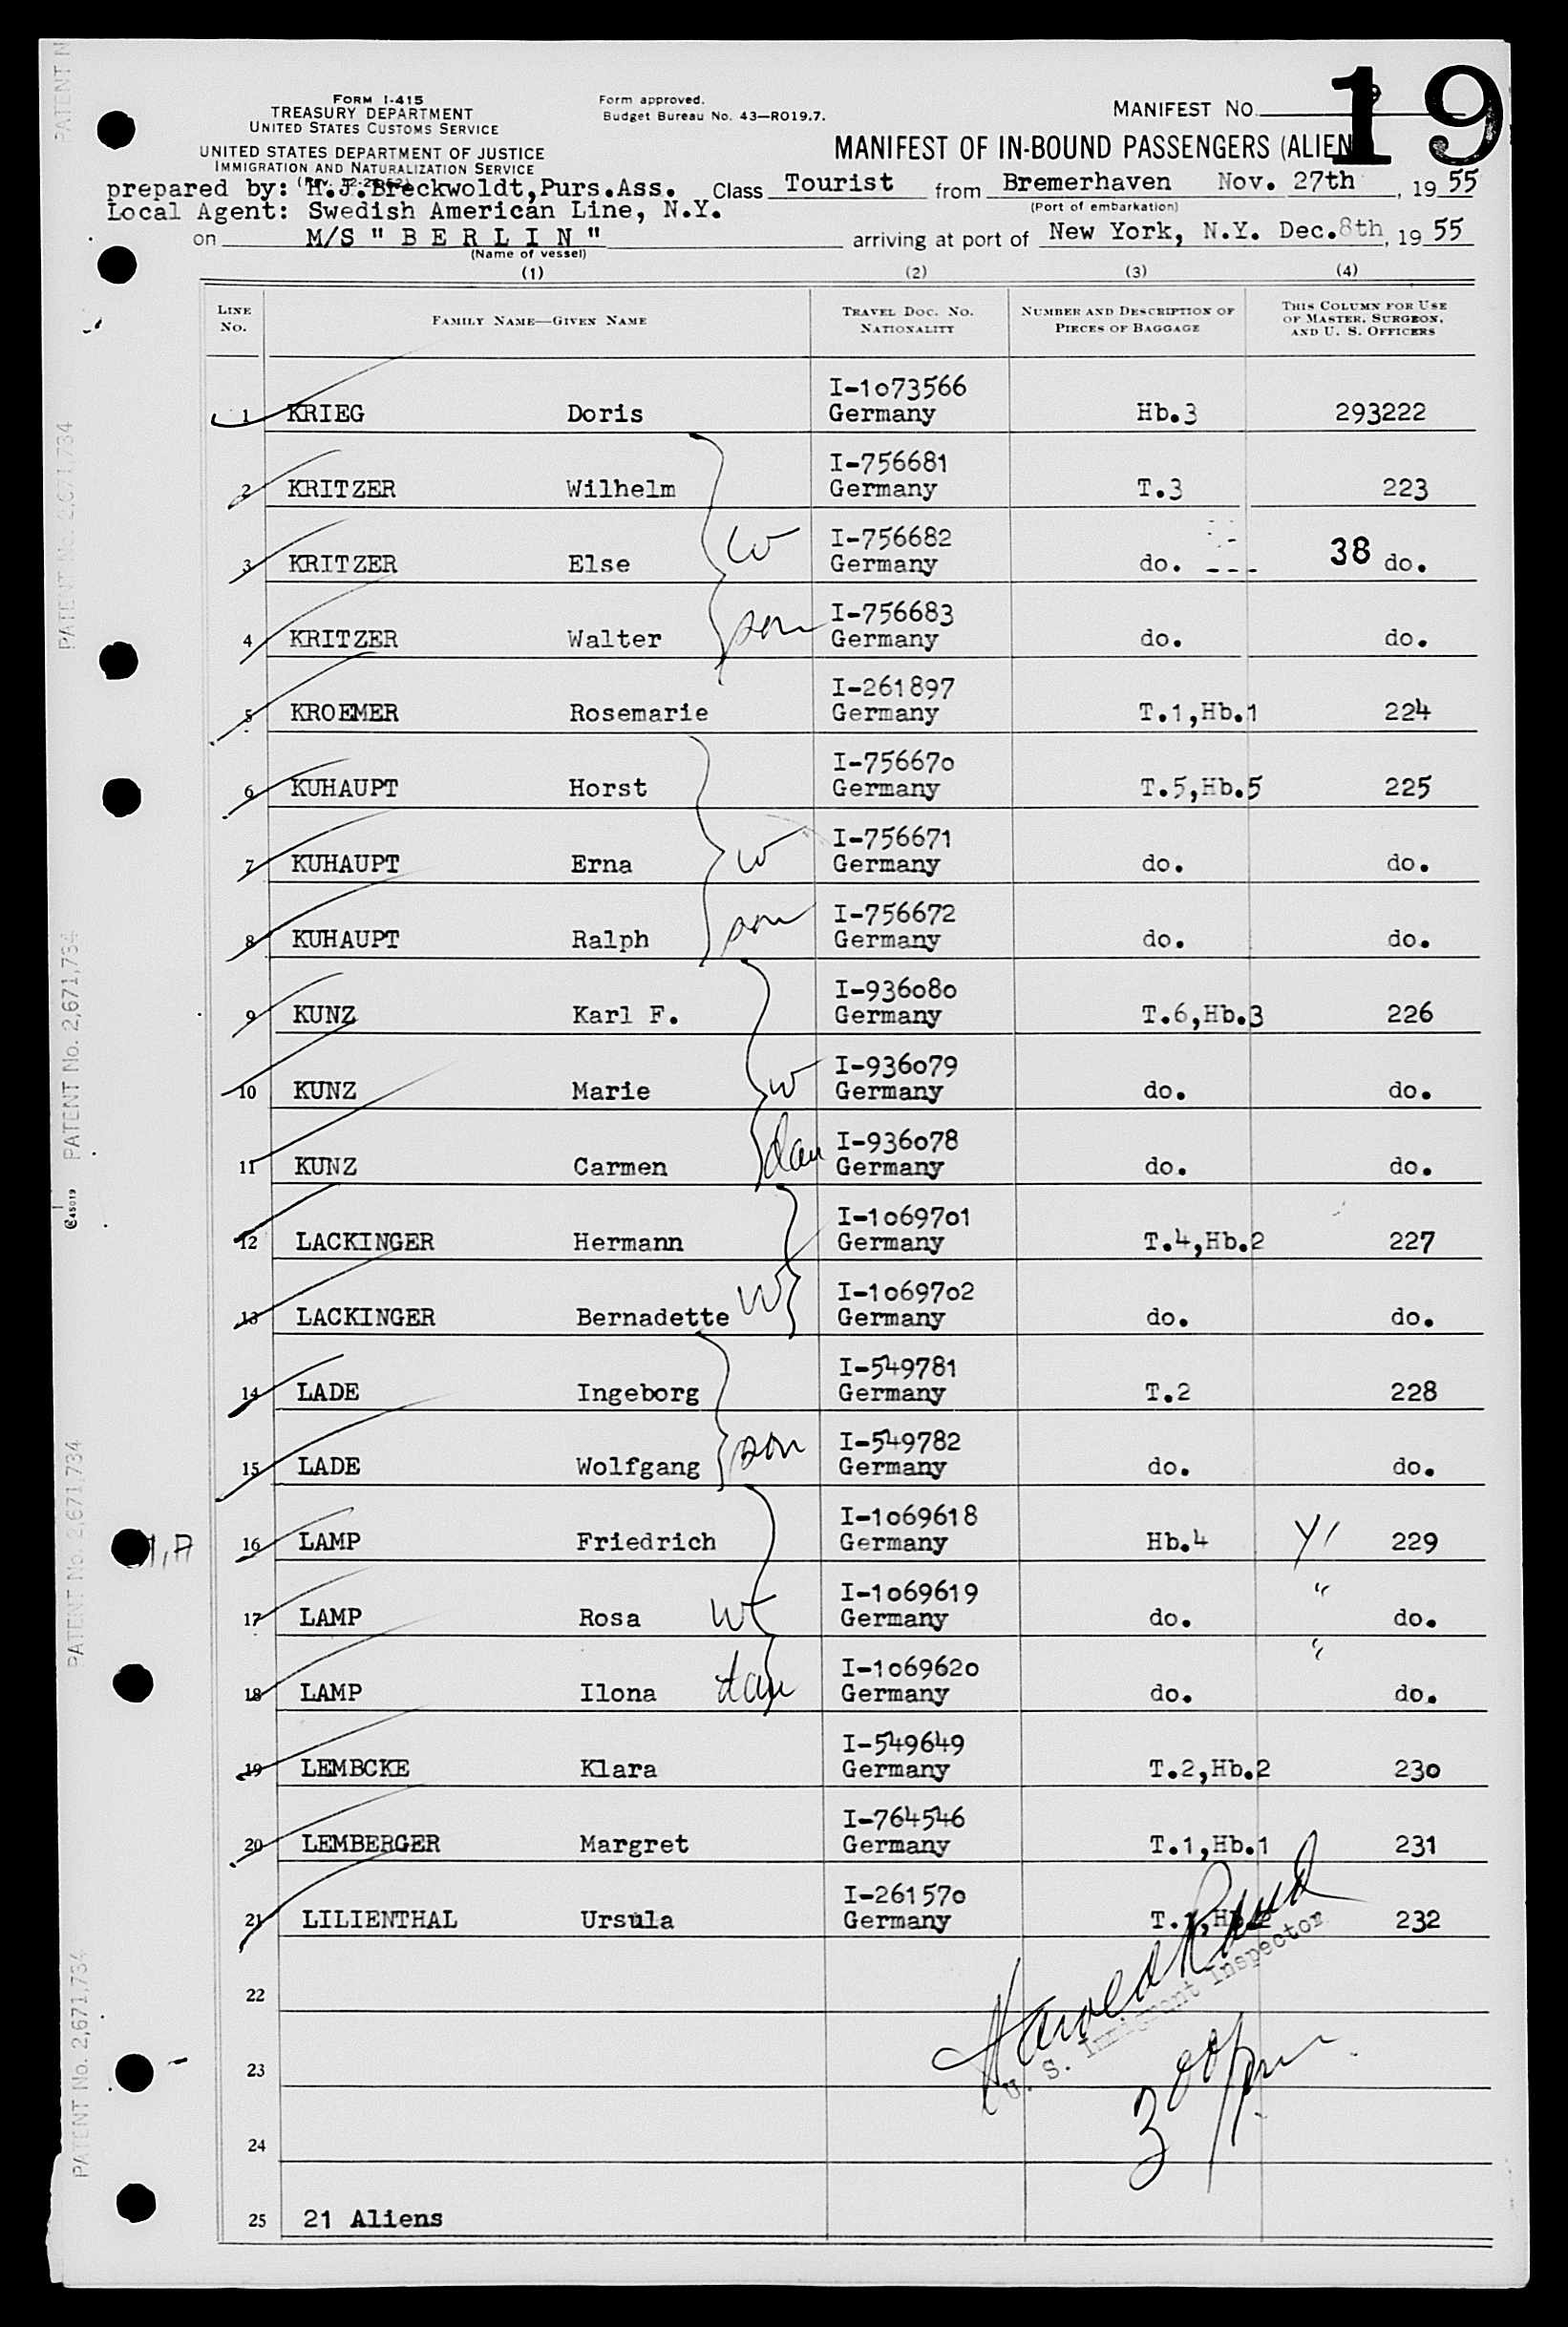 19
FORM I-415
TREASURY DEPARTMENT
UNITED STATES CUSTOMS SERVICE
UNITED STATES DEPARTMENT OF JUSTICE
IMMIGRATION AND NATURALIZATION SERVICE
Form approved.
Budget Bureau No. 43—RO19.7.
MANIFEST NO.
MANIFEST OF IN-BOUND PASSENGERS (ALIEN
prepared by: H.J.Breckwoldt,Purs.Ass. Class Tourist from Bremerhaven Nov. 27th, 1955
(Port of embarkation)
Local Agent: Swedish American Line, N.Y.
on M/S " B E R L I N " arriving at port of New York, N.Y. Dec.8th, 1955
(Name of vessel)
(1) (2) (3) (4)
LINE No. FAMILY NAME—GIVEN NAME TRAVEL DOC. NO. NATIONALITY NUMBER AND DESCRIPTION OF PIECES OF BAGGAGE THIS COLUMN FOR USE OF MASTER, SURGEON, AND U. S. OFFICERS
I-1073566
1 KRIEG Doris Germany Hb.3 293222
I-756681
2 KRITZER Wilhelm Germany T.3 223
I-756682
3 KRITZER Else w Germany do. 38 do.
I-756683
4 KRITZER Walter son Germany do. do.
I-261897
5 KROEMER Rosemarie Germany T.1,Hb.1 224
I-756670
6 KUHAUPT Horst Germany T.5,Hb.5 225
I-756671
7 KUHAUPT Erna w Germany do. do.
I-756672
8 KUHAUPT Ralph son Germany do. do.
I-936080
9 KUNZ Karl F. Germany T.6,Hb.3 226
I-936079
10 KUNZ Marie w Germany do. do.
I-936078
11 KUNZ Carmen dau Germany do. do.
I-1069701
12 LACKINGER Hermann Germany T.4,Hb.2 227
I-1069702
13 LACKINGER Bernadette W Germany do. do.
I-549781
14 LADE Ingeborg Germany T.2 228
I-549782
15 LADE Wolfgang son Germany do. do.
I-1069618
16 LAMP Friedrich Germany Hb.4 229
I-1069619
17 LAMP Rosa W Germany do. " do.
I-1069620
18 LAMP Ilona dau Germany do. " do.
I-549649
19 LEMBCKE Klara Germany T.2,Hb.2 230
I-764546
20 LEMBERGER Margret Germany T.1,Hb.1 231
I-261570
21 LILIENTHAL Ursula Germany T.1,Hb.2 232
22
Harold
U. S. Immigrant Inspector
23
300pm
24
25 21 Aliens
PATENT N
PATENT No. 2,671,734
PATENT No. 2,671,734
PATENT No. 2,671,734
PATENT No. 2,671,734